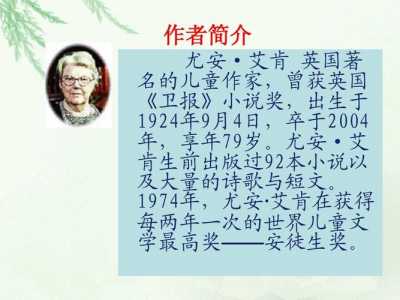 作者简介
尤安·艾肯 英国著
名的儿童作家，曾获英国
《卫报》小说奖，出生于
1924年9月4日，卒于2004
年，享年79岁。尤安·艾
肯生前出版过92本小说以
及大量的诗歌与短文。
1974年，尤安·艾肯在获得
每两年一次的世界儿童文
学最高奖——安徒生奖。